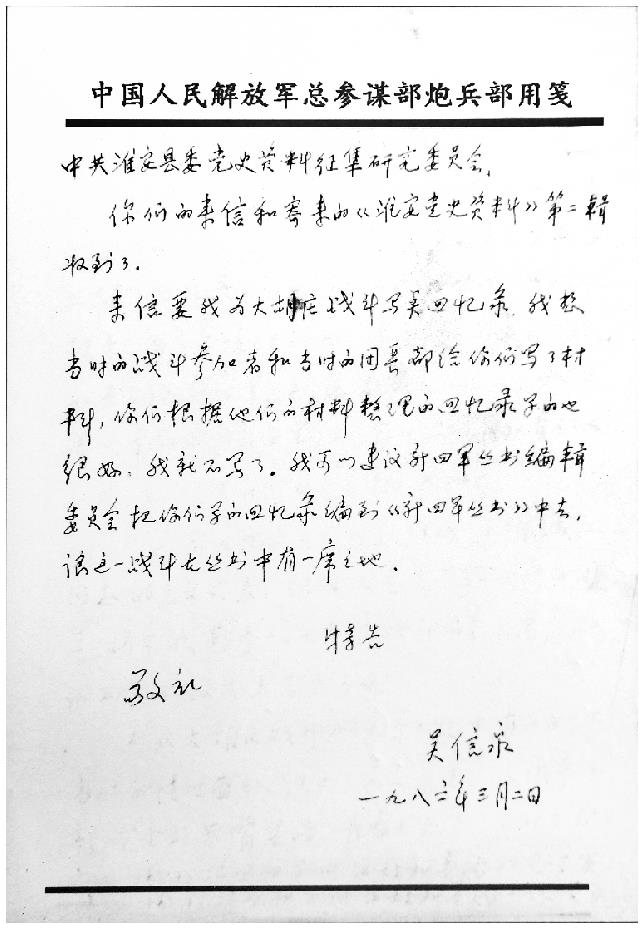 中国人民解放军总参谋部炮兵部用笺
中共淮安县委党史资料征集研究委员会，
你们的来信和寄来的《淮安党史资料》第二辑
收到了。
来信要我为大胡庄战斗写点回忆录，我想
当时的战斗参加者和当时的团长都给你们写了材
料，你们根据他们的材料整理的回忆录写的也
很好，我就不写了。我可以建议新四军丛书编辑
委员会把你们写的回忆录编到《新四军丛书》中去，
让这一战斗在丛书中有一席之地。
特告
敬礼
吴信泉
一九八六年三月二日